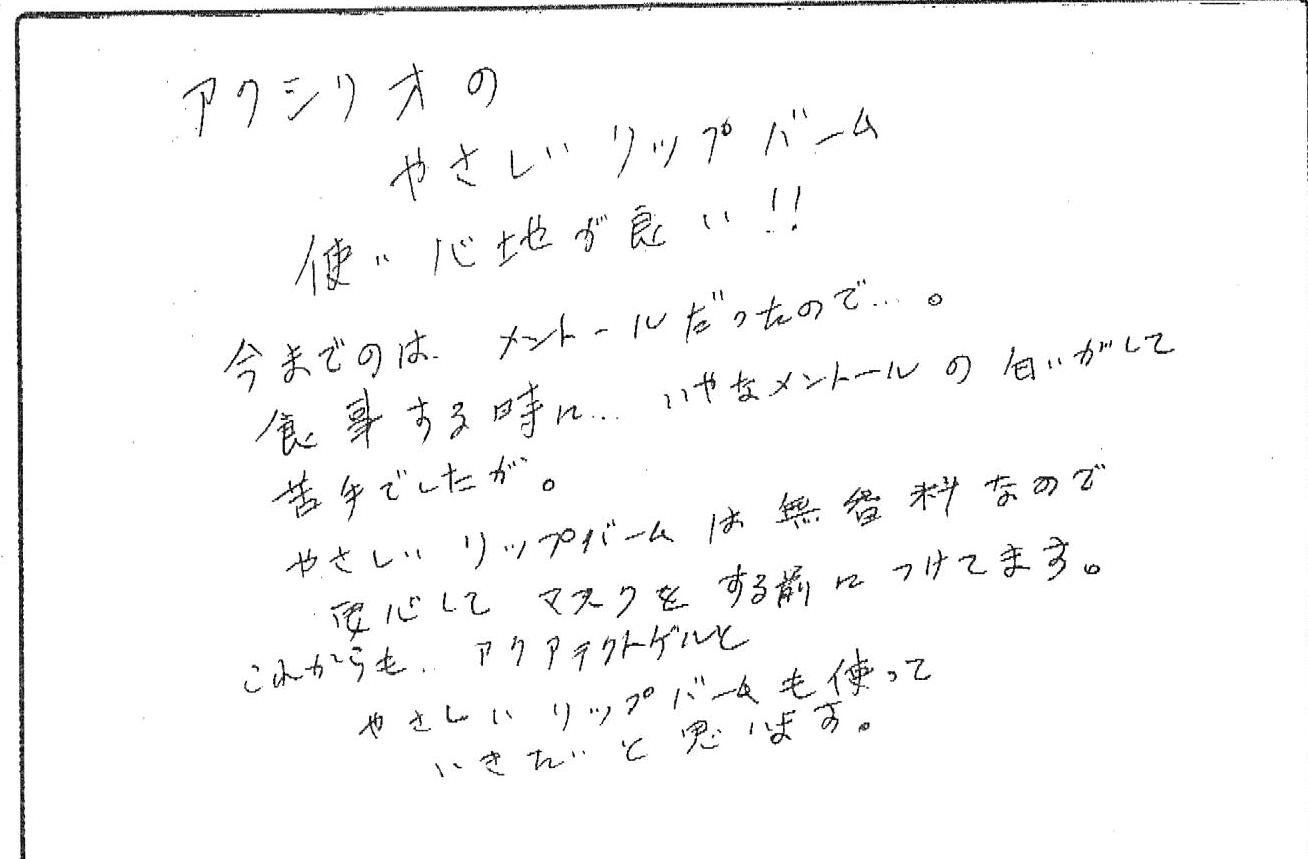 アクシリオの
やさしいリップバーム
使い心地が良い!!
今までのは‥メントールだったので…。
食事する時に…いやなメントールの匂いがして
苦手でしたが。
やさしいリップバームは無香料なので
安心してマスクをする前につけてます。
これからも‥アクアテクトゲルと
やさしいリップバームも使って
いきたいと思います。